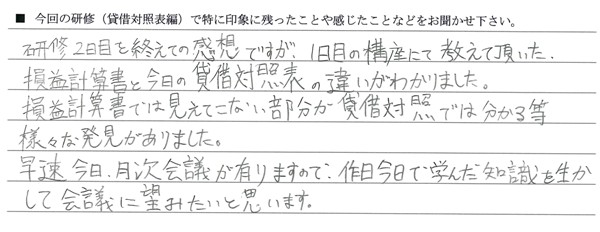 ■ 今回の研修（貸借対照表編）で特に印象に残ったことや感じたことなどをお聞かせ下さい。
研修2日目を終えての感想ですが1日目の構座にて教えて頂いた、
損益計算書と今日の貸借対照表の違いがわかりました。
損益計算書では見えてこない部分が貸借対照では分かる等
様々な発見がありました。
早速今日、月次会議が有りますので、作日今日で学んだ知識を生か
して会議に望みたいと思います。